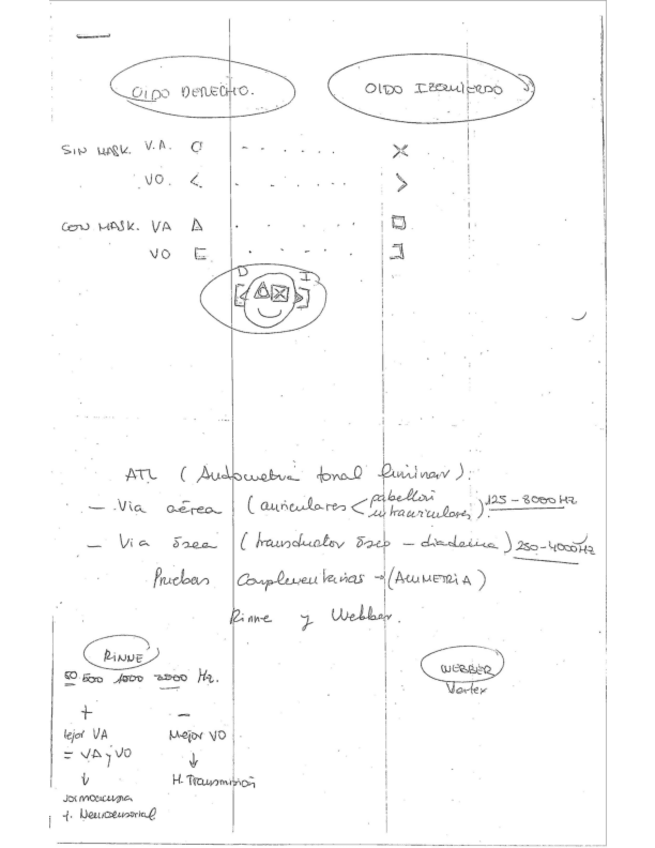 OIDO DERECHO. OIDO IZQUIERDO
SIN MASK. V.A. O - - - - - - X
VO. < - - - - - - >
CON MASK. VA △ - - - - - - □
VO [ - - - - - - ]
D I
ATL (Audometria tonal liminar).
— Via aérea (auriculares < pabellón intrauriculares) 125 - 8000 Hz
— Via ósea (transductor óseo - diadema) 250 - 4000 Hz
Pruebas Complementarias → (ACUMETRIA)
Rinne y Webber.
RINNE WEBBER
500 1000 2000 Hz. Vertex
+ —
ejor VA Mejor VO
= VA y VO ↓
↓ H. Transmisión
Neurosensorial